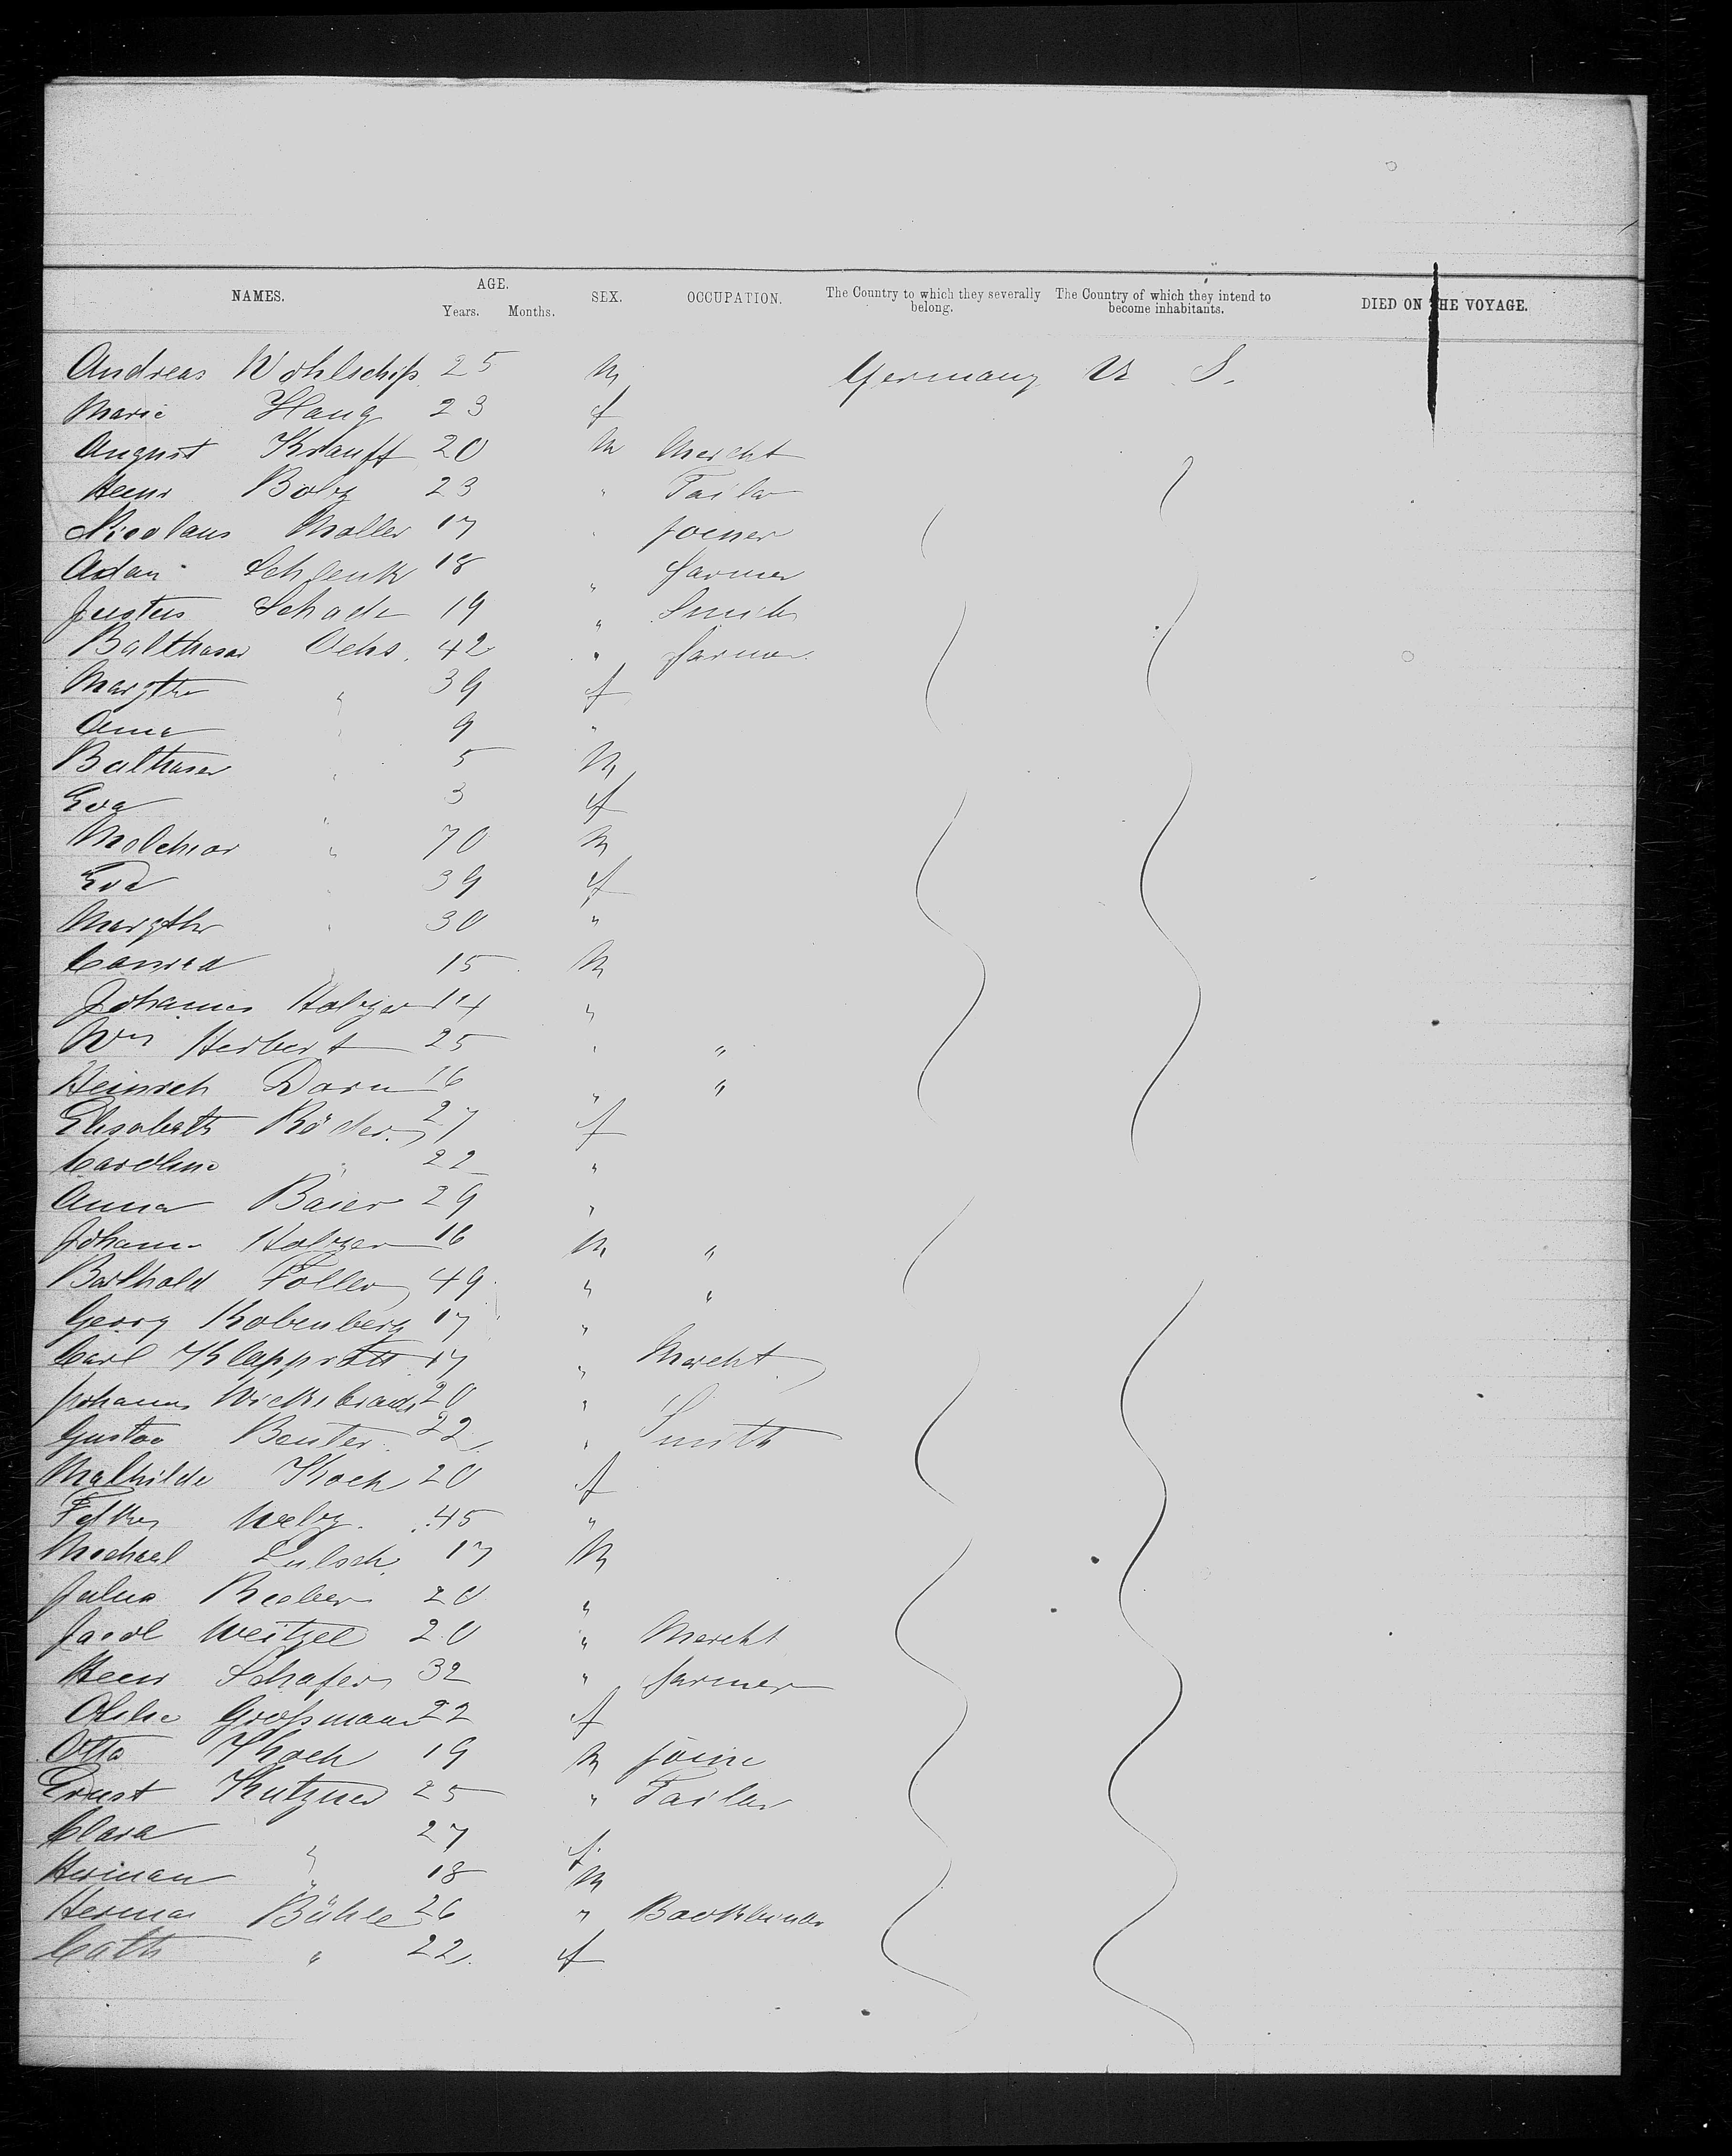 NAMES. AGE. Years. Months. SEX. OCCUPATION. The Country to which they severally belong. The Country of which they intend to become inhabitants. DIED ON THE VOYAGE.
Andreas 25 M Germany U S.
Marie Haug 23 f
August Krauff 20 M Mercht
Henr Bolz 23 " Tailor
Nicolaus Moller 17 " joiner
Adam Schlenk 18 " farmer
Justus Schade 19 " Smith
Balthasar Ochs. 42 " farmer
Margthe " 39 f
Anna " 9 "
Balthaser " 5 M
Eva " 3 f
Melchior " 70 M
Eva " 39 f
Margthe " 30 "
Conrad " 15 M
Johannes Holzer 14 "
Wm Herbert 25 " "
Heinrich Dorn 16 " "
Elisabeth Röder 27 f
Caroline " 22 "
Anna Baier 29 "
Johann Holzer 16 M "
Barthold Foller 49 " "
Georg Kobenberg 17 "
Carl Klapprott 17 " Mercht
Johannes 20 "
Gustav Beuter 22 " Smith
Mathilde Koch 20 f
45 "
Michael 17 M
Julius 20 "
Jacob Weitzel 20 " Mercht
Henr Schafer 32 " farmer
Großmann 22 f
Otto Koch 19 M joine
Ernst Kutzner 25 " Tailor
Clara " 27 f
Herman " 18 M
Herman Bühle 26 " Bookbinder
Cath " 22 f